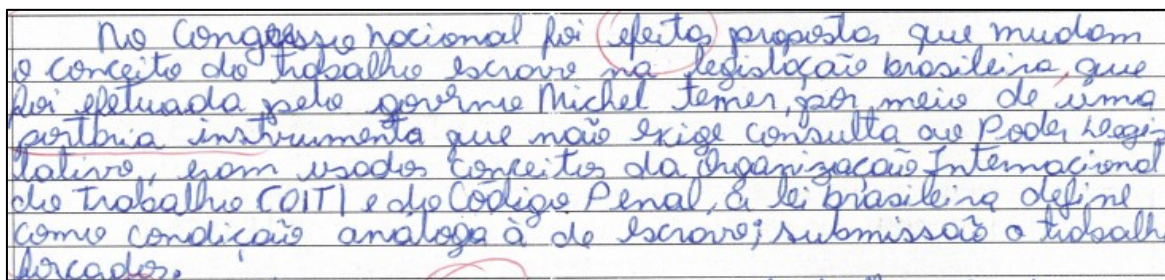 No Congresso nacional foi efeito propostas que mudam
o conceito do trabalho escravo na legislação brasileira, que
foi efetuada pelo governo Michel temer, por meio de uma
portaria instrumenta que não exige consulta ao Poder Legis
lativo, eram usados conceitos da Organização Internacional
do Trabalho (OIT) e do Código Penal, a lei brasileira define
como condição análoga à de escravo; submissão a trabalh
forçados.